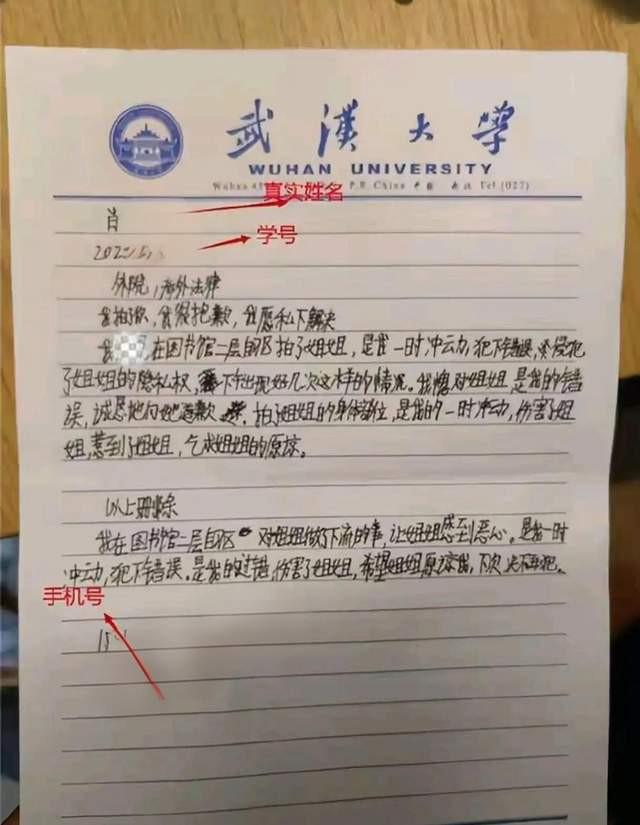 武漢大學
WUHAN UNIVERSITY
Wuhan P.R. China 中国 武汉 Tel.(027)
真实姓名
肖
学号
202
外院,涉外法律
我拍了你,我很抱歉,我愿私下解决
我,在图书馆二层B区拍了姐姐,是我一时冲动,犯下错误,侵犯
了姐姐的隐私权,出现好几次这样的情况。我愧对姐姐,是我的错
误,诚恳地向她道歉,拍了姐姐的身体部位,是我的一时冲动,伤害了姐
姐,惹到了姐姐,乞求姐姐的原谅。
以上删除
我在图书馆二层B区对姐姐做了下流的事,让姐姐感到恶心。是我一时
冲动,犯下错误。是我的过错,伤害了姐姐,希望姐姐原谅我,下次决不再犯。
手机号
15